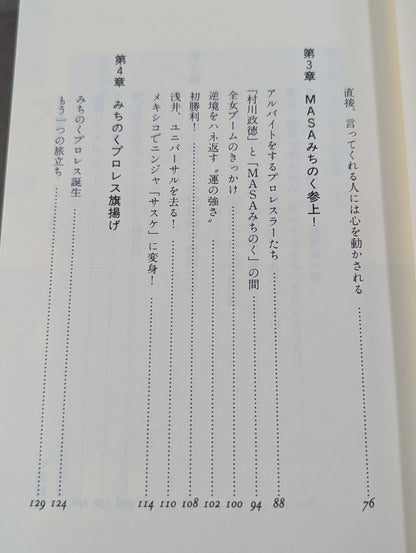 直接、言ってくれる人には心を動かされる 76
第3章 MASAみちのく参上!
アルバイトをするプロレスラーたち 88
「村川政徳」と「MASAみちのく」の間 94
全女ブームのきっかけ 100
逆境をハネ返す〝運の強さ〟 102
初勝利! 108
浅井、ユニバーサルを去る! 110
メキシコでニンジャ「サスケ」に変身! 114
第4章 みちのくプロレス旗揚げ
みちのくプロレス誕生 124
もう一つの旅立ち 129